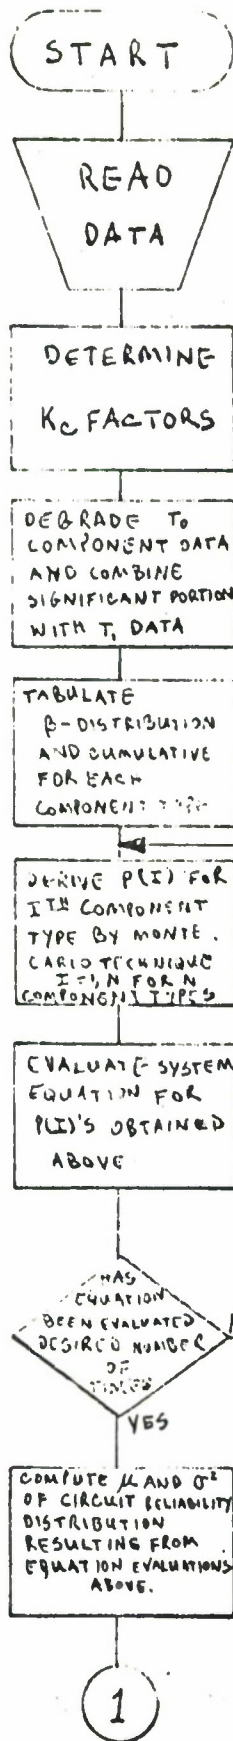 START
READ
DATA
DETERMINE
Kc FACTORS
DEGRADE To
COMPONENT DATA
AND COMBINE
SIGNIFICANT PORTION
WITH T1 DATA
TABULATE
β-DISTRIBUTION
AND CUMULATIVE
FOR EACH
COMPONENT TYPE
DERIVE P(I) FOR
ITH COMPONENT
TYPE BY MONTE
CARLO TECHNIQUE
I=1,N FOR N
COMPONENT TYPES
EVALUATE SYSTEM
EQUATION FOR
P(I)'S OBTAINED
ABOVE
HAS
EQUATION
BEEN EVALUATED
DESIRED NUMBER
OF
TIMES
YES
COMPUTE μ AND σ²
OF CIRCUIT RELIABILITY
DISTRIBUTION
RESULTING FROM
EQUATION EVALUATIONS
ABOVE.
1